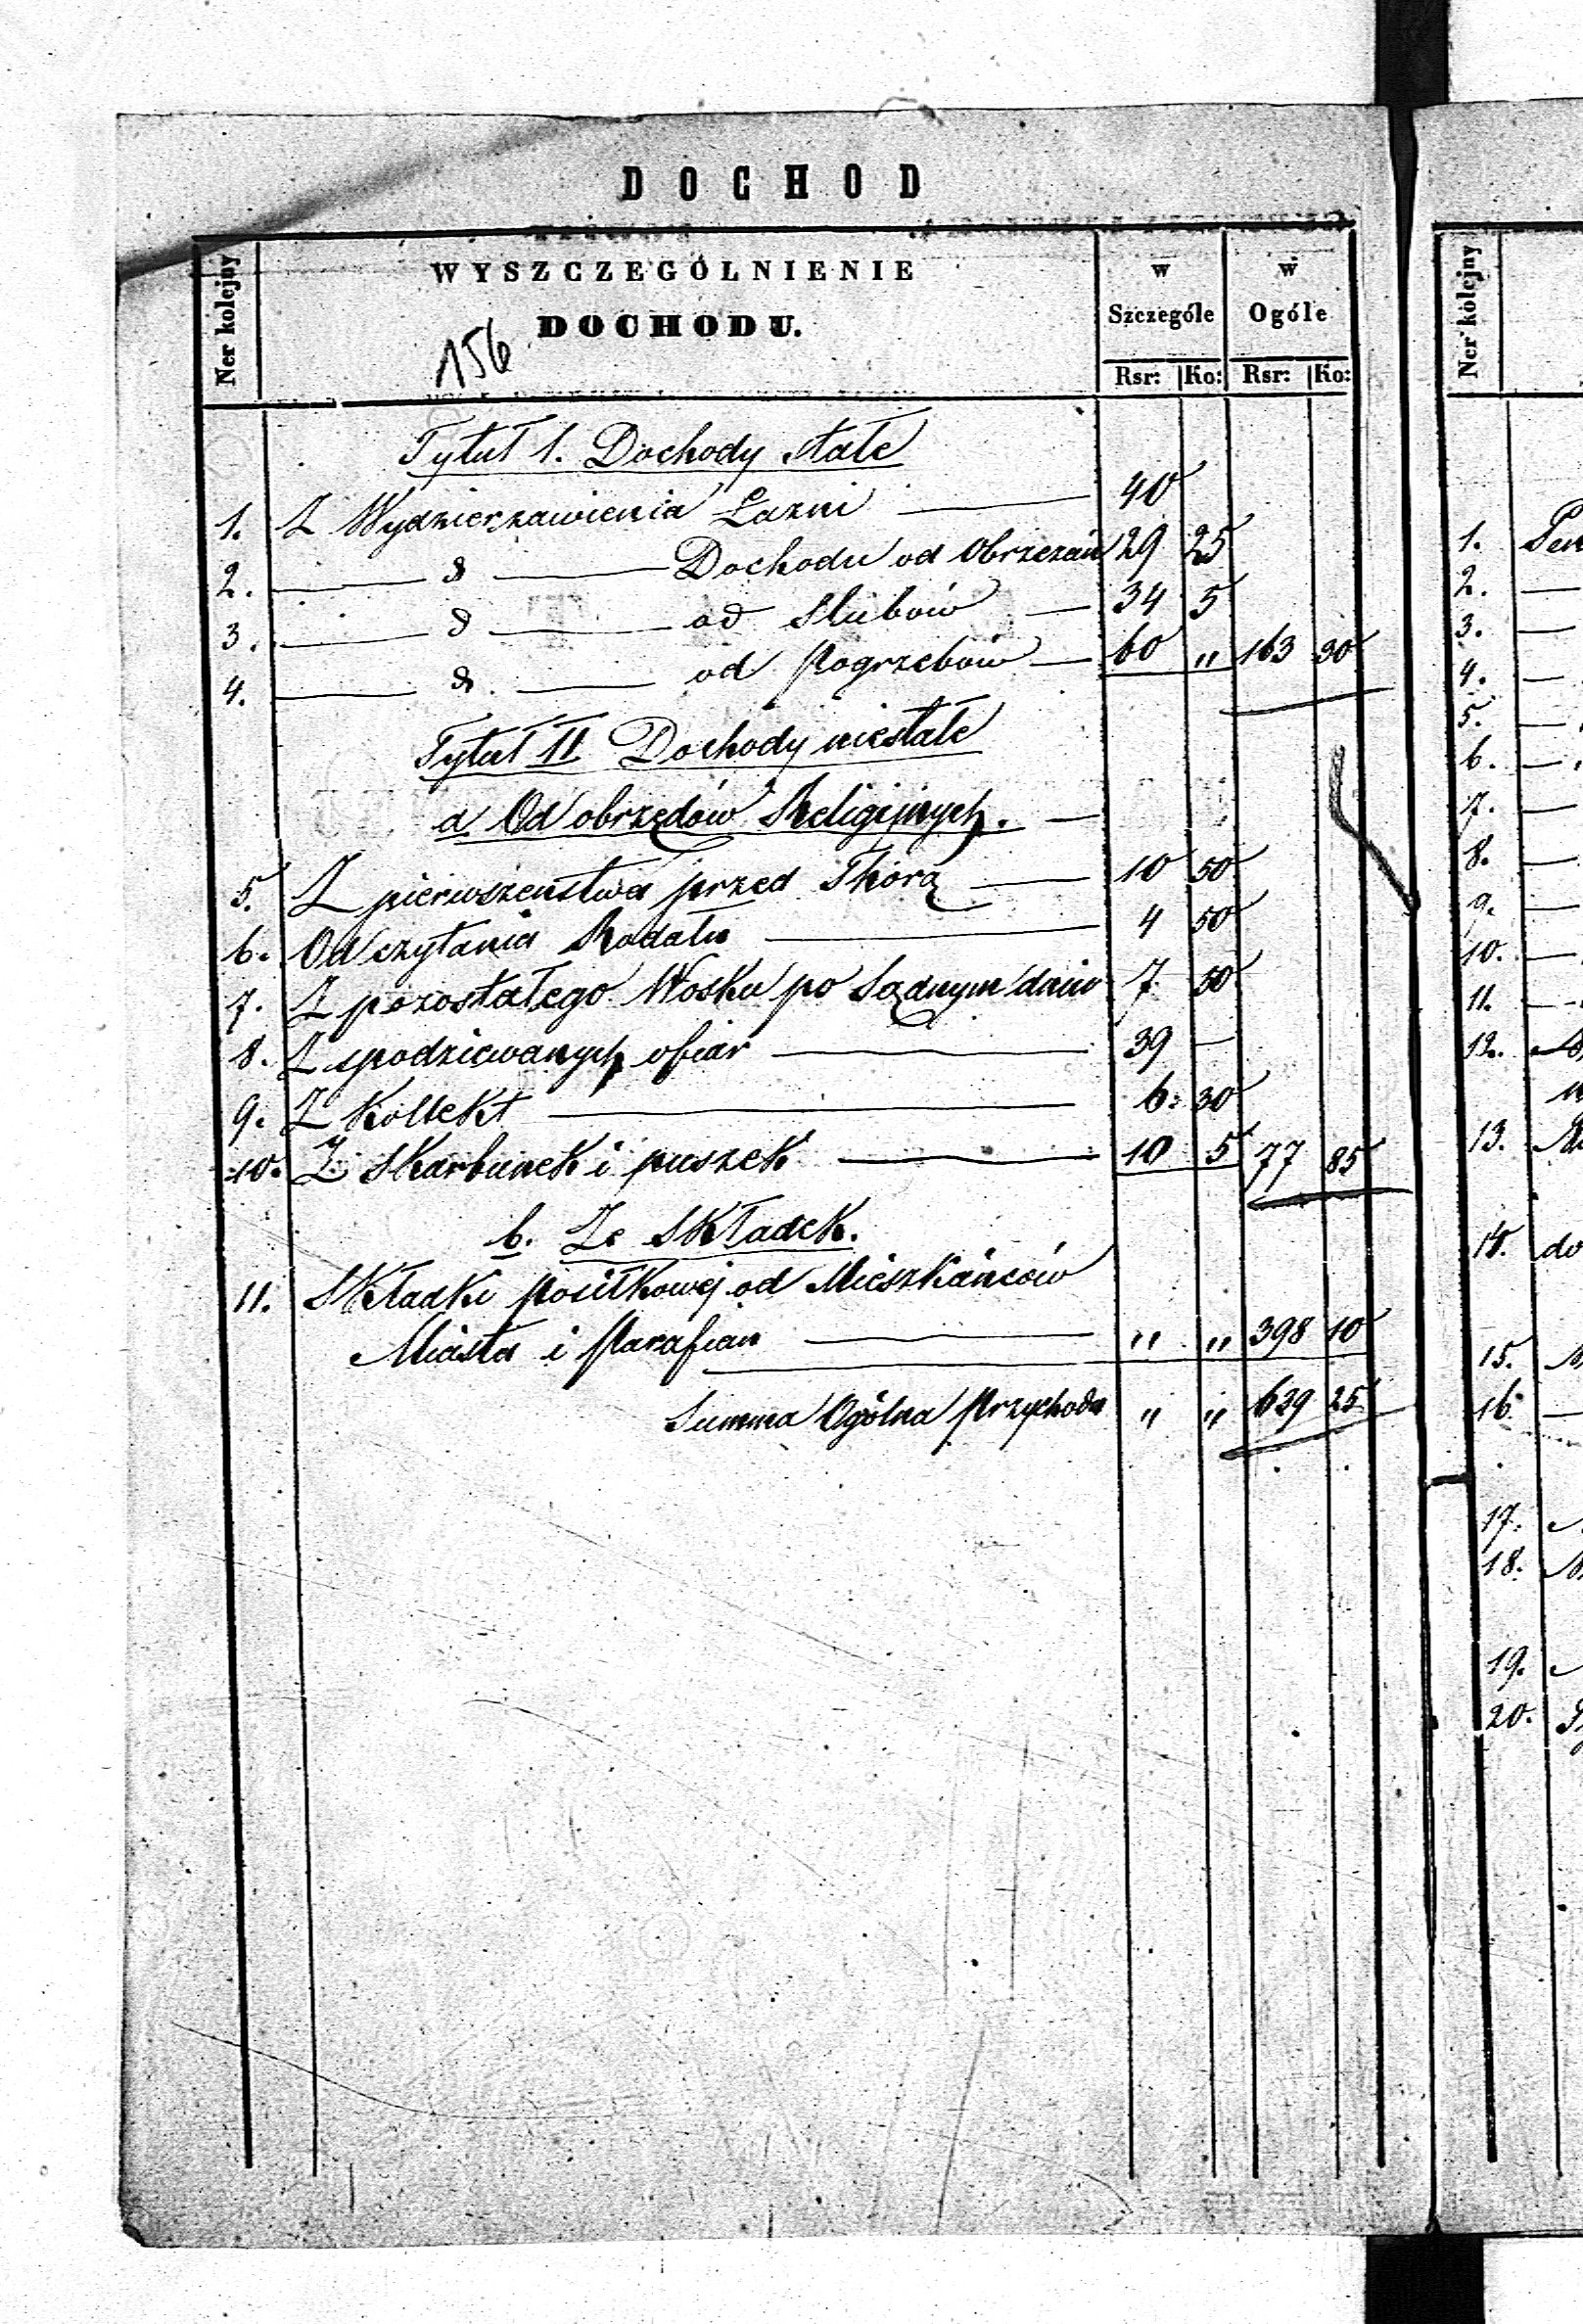 DOCHOD
Ner kolejny
WYSZCZEGÓLNIENIE
DOCHODU.
156
w Szczególe
w Ogóle
Rsr: Ko: Rsr: Ko:
Tytuł 1. Dochody stałe
1. Z Wydzierzawienia Łazni — 40
2. — d — Dochodu od Obrzezań 29 25
3. — d — od Slubów — 34 5
4. — d — od Pogrzebów — 60 „ 163 30
Tytuł II Dochody niestałe
a Od obrzędów Religijnych. —
5. Z pierwszenstwa przed Thorą — 10 50
6. Od czytania Rodału — 4 50
7. Z pozostałego Wosku po Sądnym dniu 7 50
8. Z spodziewanych ofiar — 39 —
9. Z Kollekt — 6 30
10. Z Skarbunek i puszek — 10 5 77 85
b. Ze Składek.
11. Składki posiłkowej od Mieszkańców
Miasta i Parafian — „ „ 398 10
Summa Ogólna Przychodu „ „ 639 25
Ner kolejny
1.
2. —
3. —
4. —
5. —
6. —
7. —
8. —
9. —
10. —
11. —
12.
13.
14. do
15.
16. —
17.
18.
19.
20.